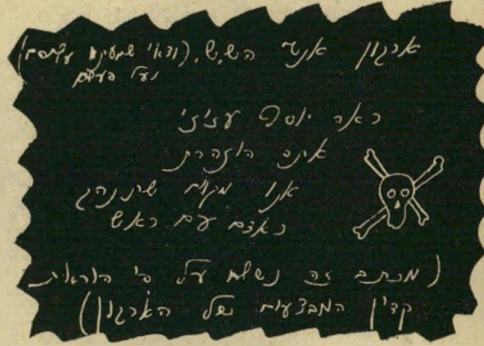 ארגון אנשי הש.ש. (ודאי שמעת עליהם
ועל
יוסף עזיזי
אינך הוזהרת
אנו מקוים שתנהג
כאדם עם ראש
(מכתב זה נשלח על פי הוראת
קצין המבצעים של הארגון)